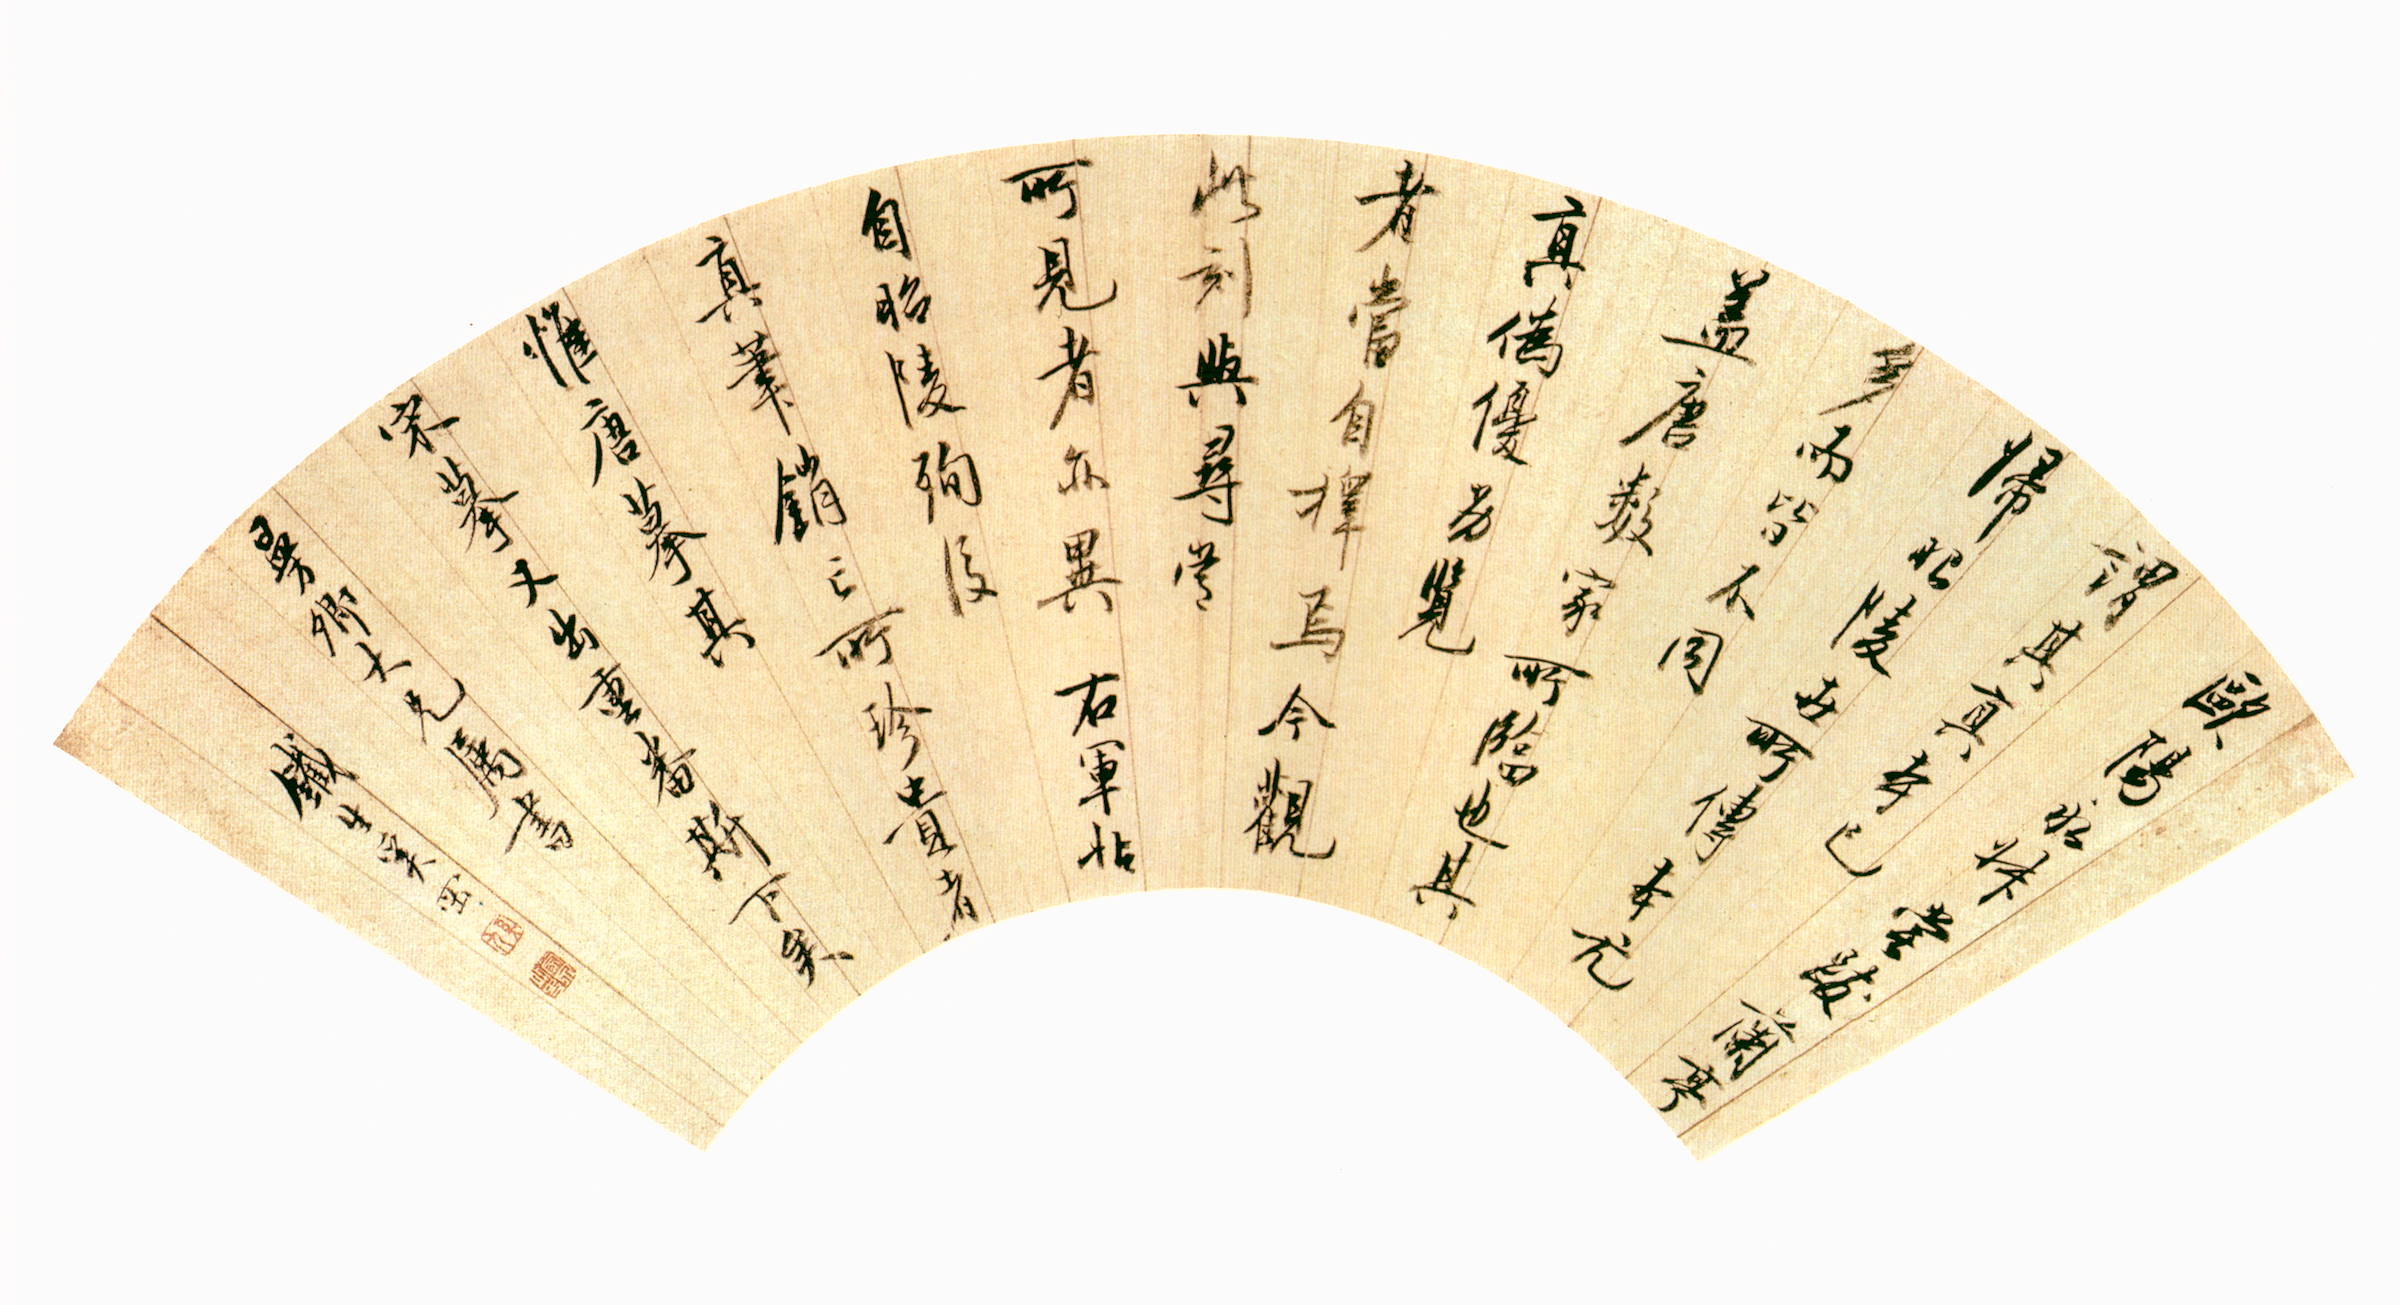 歐陽永叔嘗跋蘭亭
謂其真本已
歸昭陵世所傳本尤
多而皆不同
蓋唐數家所臨也其
真偽優劣覽
者當自擇焉今觀
此刻與尋常
所見者亦異 右軍帖
自昭陵殉後
真筆銷亡所珍貴者
惟唐摹其
宋摹又出重臺斯下矣
大兄屬書
鐵生奚岡